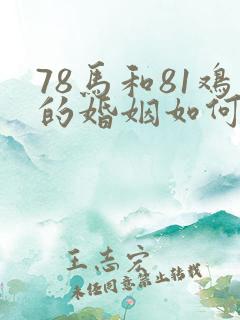 78馬和81鸡
的婚姻如何
王志宏
未经同意禁止转载